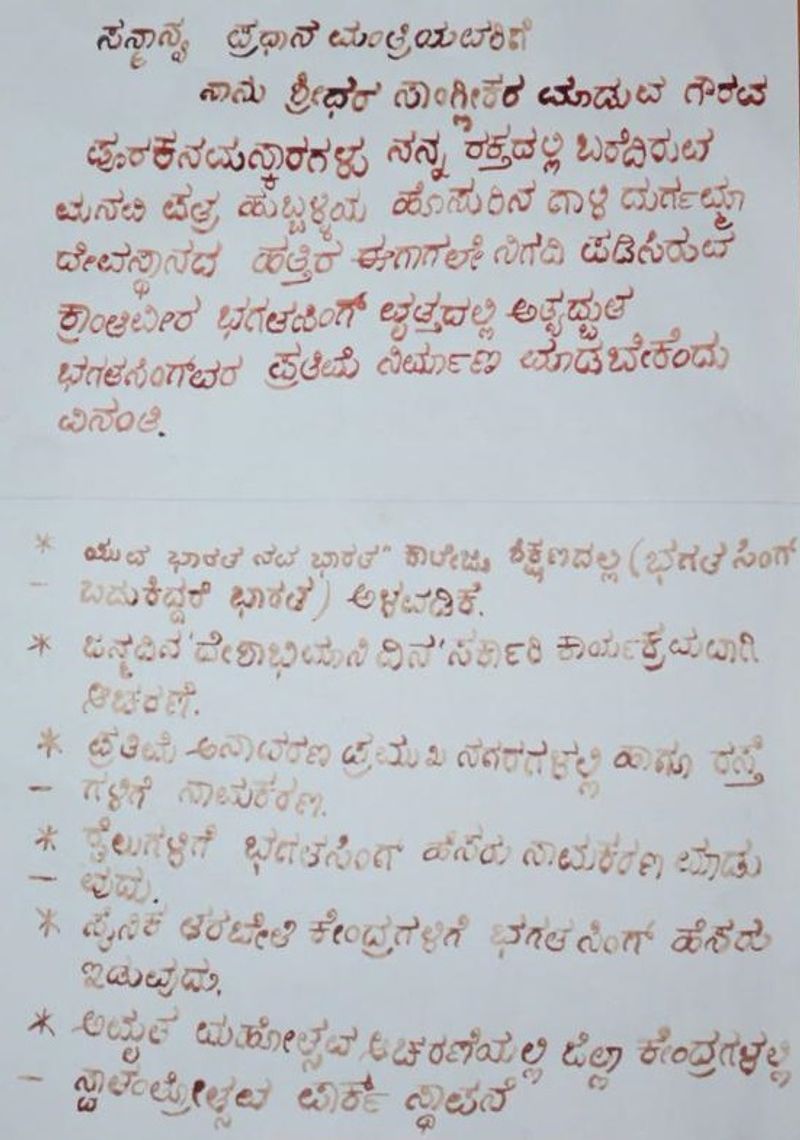 ಸನ್ಮಾನ್ಯ ಪ್ರಧಾನ ಮಂತ್ರಿಯವರಿಗೆ
ನಾನು ಶ್ರೀಧರ ಸಾಂಗ್ಲೀಕರ ಮಾಡುವ ಗೌರವ
ಪೂರಕನಮಸ್ಕಾರಗಳು ನನ್ನ ರಕ್ತದಲ್ಲಿ ಬರೆದಿರುವ
ಮನವಿ ಪತ್ರ ಹುಬ್ಬಳ್ಳಿಯ ಹೊಸುರಿನ ಗಾಳಿ ದುರ್ಗಮ್ಮಾ
ದೇವಸ್ಥಾನದ ಹತ್ತಿರ ಈಗಾಗಲೇ ನಿಗದಿ ಪಡಿಸಿರುವ
ಕ್ರಾಂತಿವೀರ ಭಗತಸಿಂಗ್ ವೃತ್ತದಲ್ಲಿ ಅತ್ಯದ್ಭುತ
ಭಗತಸಿಂಗ್‌ವರ ಪ್ರತಿಮೆ ನಿರ್ಮಾಣ ಮಾಡಬೇಕೆಂದು
ವಿನಂತಿ.
* ಯುವ ಭಾರತ ನವ ಭಾರತ" ಕಾಲೇಜು ಶಿಕ್ಷಣದಲ್ಲಿ (ಭಗತ ಸಿಂಗ್
- ಬದುಕಿದ್ದರೆ ಭಾರತ) ಅಳವಡಿಕೆ.
* ಜನ್ಮದಿನ 'ದೇಶಾಭಿಮಾನಿ ದಿನ' ಸರ್ಕಾರಿ ಕಾರ್ಯಕ್ರಮವಾಗಿ
ಆಚರಣೆ.
* ಪ್ರತಿಮೆ ಅನಾವರಣ ಪ್ರಮುಖ ನಗರಗಳಲ್ಲಿ ಹಾಗೂ ರಸ್ತೆ
- ಗಳಿಗೆ ನಾಮಕರಣ.
* ರೈಲುಗಳಿಗೆ ಭಗತಸಿಂಗ್ ಹೆಸರು ನಾಮಕರಣ ಮಾಡು
- ವುದು.
* ಸೈನಿಕ ತರಬೇತಿ ಕೇಂದ್ರಗಳಿಗೆ ಭಗತ ಸಿಂಗ್ ಹೆಸರು
ಇಡುವುದು.
* ಅಮೃತ ಮಹೋತ್ಸವ ಆಚರಣೆಯಲ್ಲಿ ಜಿಲ್ಲಾ ಕೇಂದ್ರಗಳಲ್ಲಿ
- ಸ್ವಾತಂತ್ರೋತ್ಸವ ಪಾರ್ಕ್ ಸ್ಥಾಪನೆ